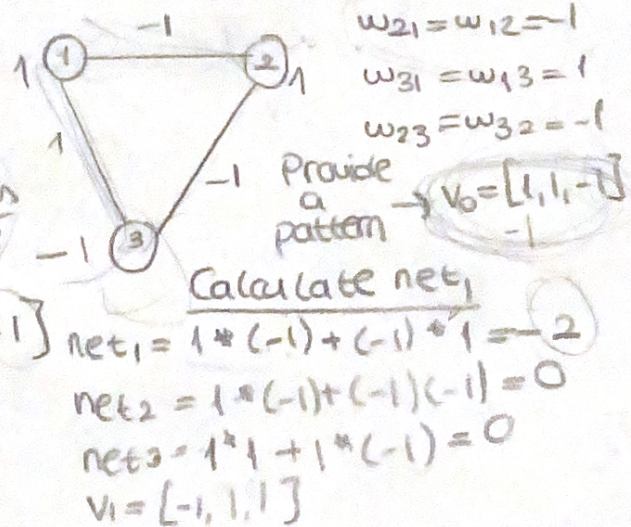 -1
w21=w12=-1
1 1 2 1
w31=w13=1
1
w23=w32=-1
-1
Provide
a
pattern → v0=[1,1,-1]
-1
-1 3
Calculate net1
1] net1=1*(-1)+(-1)*1=-2
net2=1*(-1)+(-1)(-1)=0
net3=1*1+1*(-1)=0
v1=[-1,1,1]